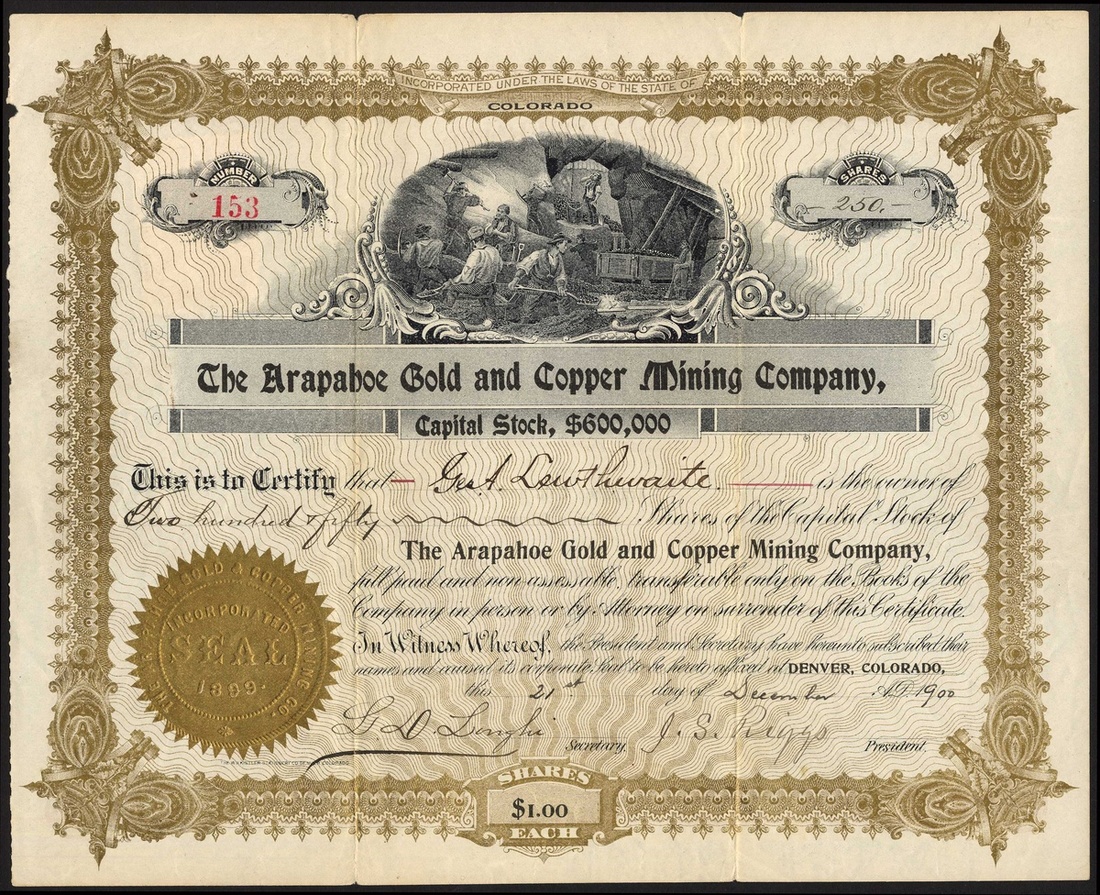 INCORPORATED UNDER THE LAWS OF THE STATE OF
COLORADO
NUMBER
153
SHARES
250.
The Arapahoe Gold and Copper Mining Company,
Capital Stock, $600,000
This is to Certify that Geo. A. Lewthwaite is the owner of
Two hundred & fifty Shares of the Capital Stock of
The Arapahoe Gold and Copper Mining Company,
full paid and non assessable, transferable only on the Books of the
Company in person or by Attorney on surrender of this Certificate.
In Witness Whereof, the President and Secretary have hereunto subscribed their
names and caused its corporate Seal to be hereto affixed at DENVER, COLORADO,
this 21st day of December A.D. 1900
Secretary. J. S. Riggs President.
GOLD & COPPER MINING CO.
INCORPORATED
SEAL
1899
SHARES
$1.00
EACH